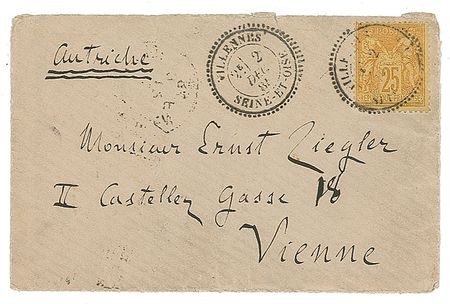 Autriche
VILLENNES
2
DEC
SEINE-ET-OISE
25
Monsieur Ernst Ziegler
II Castellez Gasse 18
Vienne